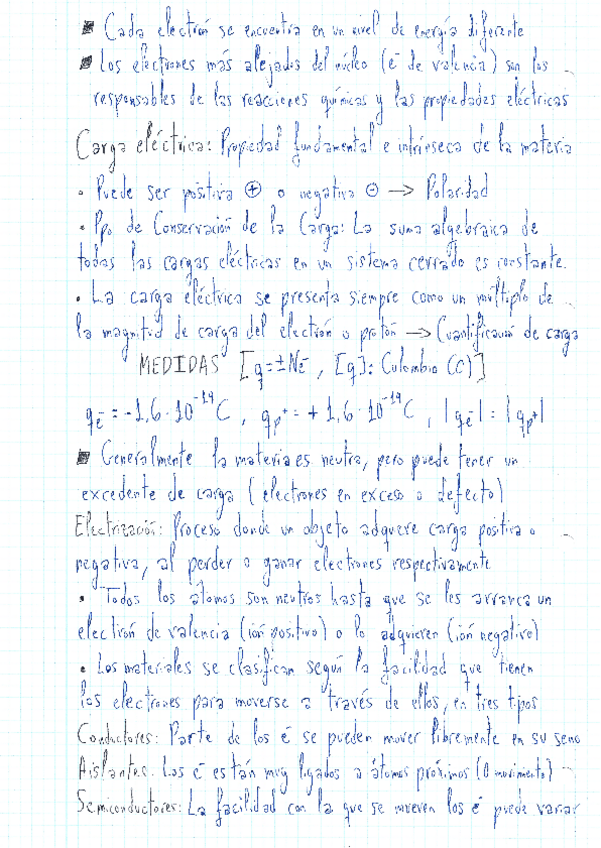 ▪ Cada electrón se encuentra en un nivel de energía diferente
▪ Los electrones más alejados del núcleo (e⁻ de valencia) son los
responsables de las reacciones químicas y las propiedades eléctricas
Carga eléctrica: Propiedad fundamental e intrínseca de la materia
• Puede ser positiva ⊕ o negativa ⊖ → Polaridad
• Ppo de Conservación de la Carga: La suma algebraica de
todas las cargas eléctricas en un sistema cerrado es constante.
• La carga eléctrica se presenta siempre como un múltiplo de
la magnitud de carga del electrón o protón → Cuantificación de carga
MEDIDAS [q=±Ne⁻, [q]: Culombio (C)]
qe⁻ = -1,6·10⁻¹⁹C, qp⁺ = +1,6·10⁻¹⁹C, |qe⁻| = |qp⁺|
▪ Generalmente la materia es neutra, pero puede tener un
excedente de carga (electrones en exceso o defecto)
Electrización: Proceso donde un objeto adquere carga positiva o
negativa, al perder o ganar electrones respectivamente
• Todos los átomos son neutros hasta que se les arranca un
electrón de valencia (ión positivo) o lo adquieren (ión negativo)
• Los materiales se clasifican según la facilidad que tienen
los electrones para moverse a través de ellos, en tres tipos
Conductores: Parte de los e⁻ se pueden mover libremente en su seno
Aislantes: Los e⁻ están muy ligados a átomos próximos (0 movimiento)
Semiconductores: La facilidad con la que se mueven los e⁻ puede variar